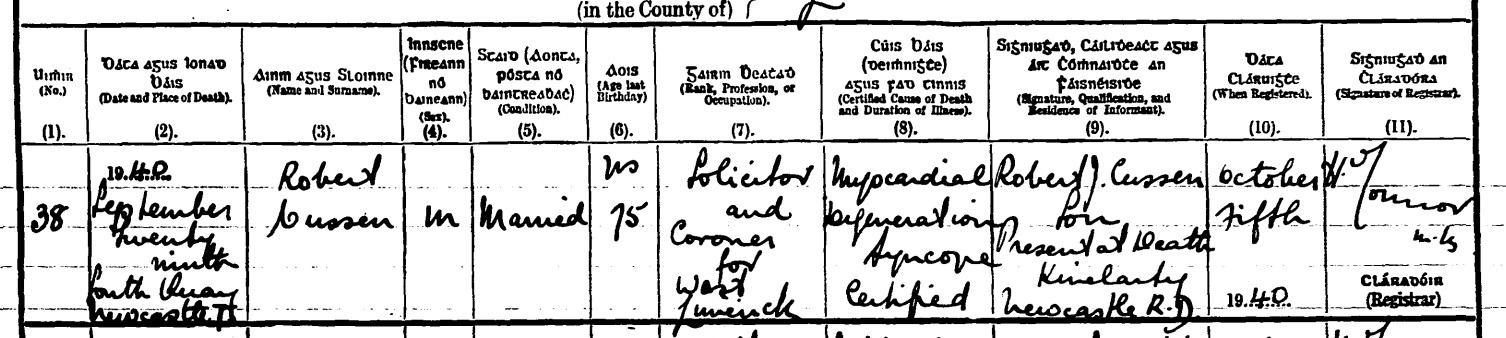 (in the County of)
Uimhir
(No.)
(1).
Dáta agus Ionad
Báis
(Date and Place of Death).
(2).
Ainm agus Sloinne
(Name and Surname).
(3).
Innscne
(Fireann
nó
baineann)
(Sex).
(4).
Staid (Aonta,
pósta nó
baintreabhach)
(Condition).
(5).
Aois
(Age last
Birthday)
(6)
Gairm Beatha
(Rank, Profession, or
Occupation).
(7).
Cúis Báis
(deimhnighthe)
agus fad tinnis
(Certified Cause of Death
and Duration of Illness).
(8).
Sighniughadh, Cáilidheacht agus
áit Comhnaidhthe an
fáisnéisidhe
(Signature, Qualification, and
Residence of Informant).
(9).
Dáta
Cláruighthe
(When Registered).
(10).
Sighniughadh an
Cláradóra
(Signature of Registrar).
(11).
38
1940
September
Twenty
ninth
South Quay
Newcastle W
Robert
Cussen
M
Married
75
Solicitor
and
Coroner
for
West
Limerick
Myocardial
Degeneration
Syncope
Certified
Robert J. Cussen
Son
Present at Death
Newcastle R.D.
October
Fifth
1940
Cláradóir
(Registrar)